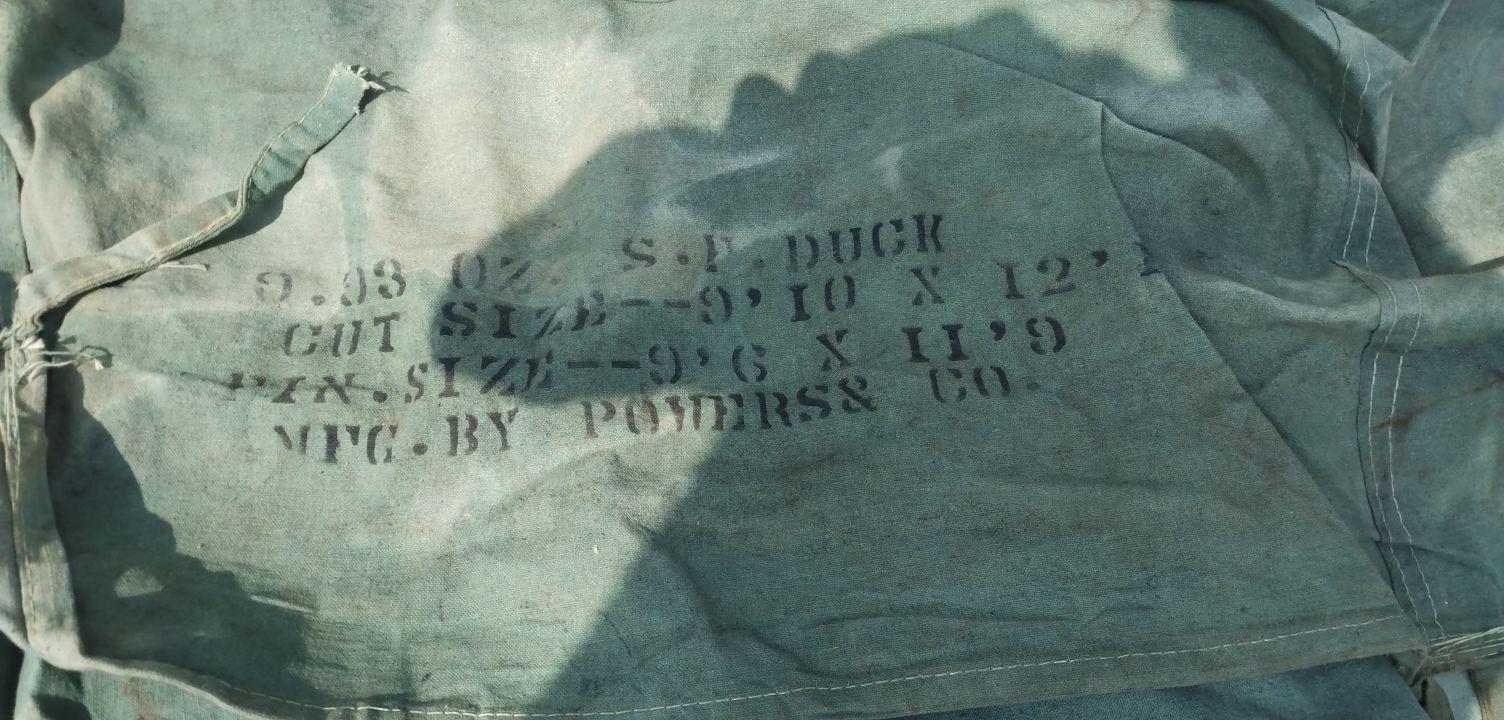 9.93 OZ. S.F. DUCK
CUT SIZE--9'10 X 12'1
FIN.SIZE--9'6 X 11'9
MFG.BY POWERS& CO.